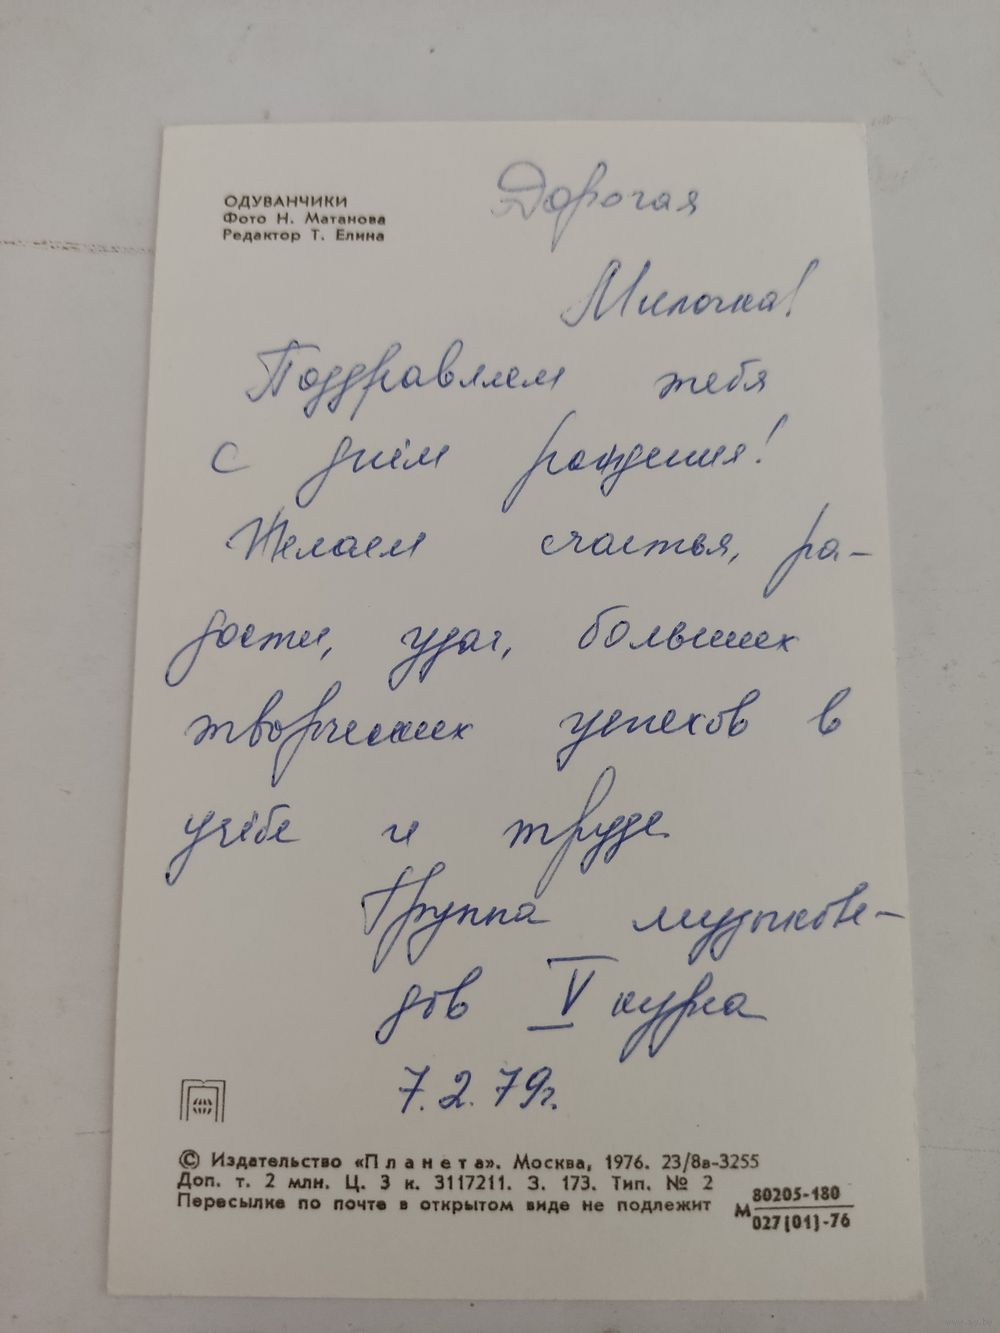 ОДУВАНЧИКИ
Фото Н. Матанова
Редактор Т. Елина
Дорогая
Милочка!
Поздравляем тебя
с днём рождения!
Желаем счастья, ра-
дости, удач, больших
творческих успехов в
учёбе и труде
Группа музыкове-
дов V курса
7.2.79г.
© Издательство «Планета». Москва, 1976. 23/8в-3255
Доп. т. 2 млн. Ц. 3 к. 3117211. З. 173. Тип. № 2
Пересылке по почте в открытом виде не подлежит
М 80205-180
027(01)-76